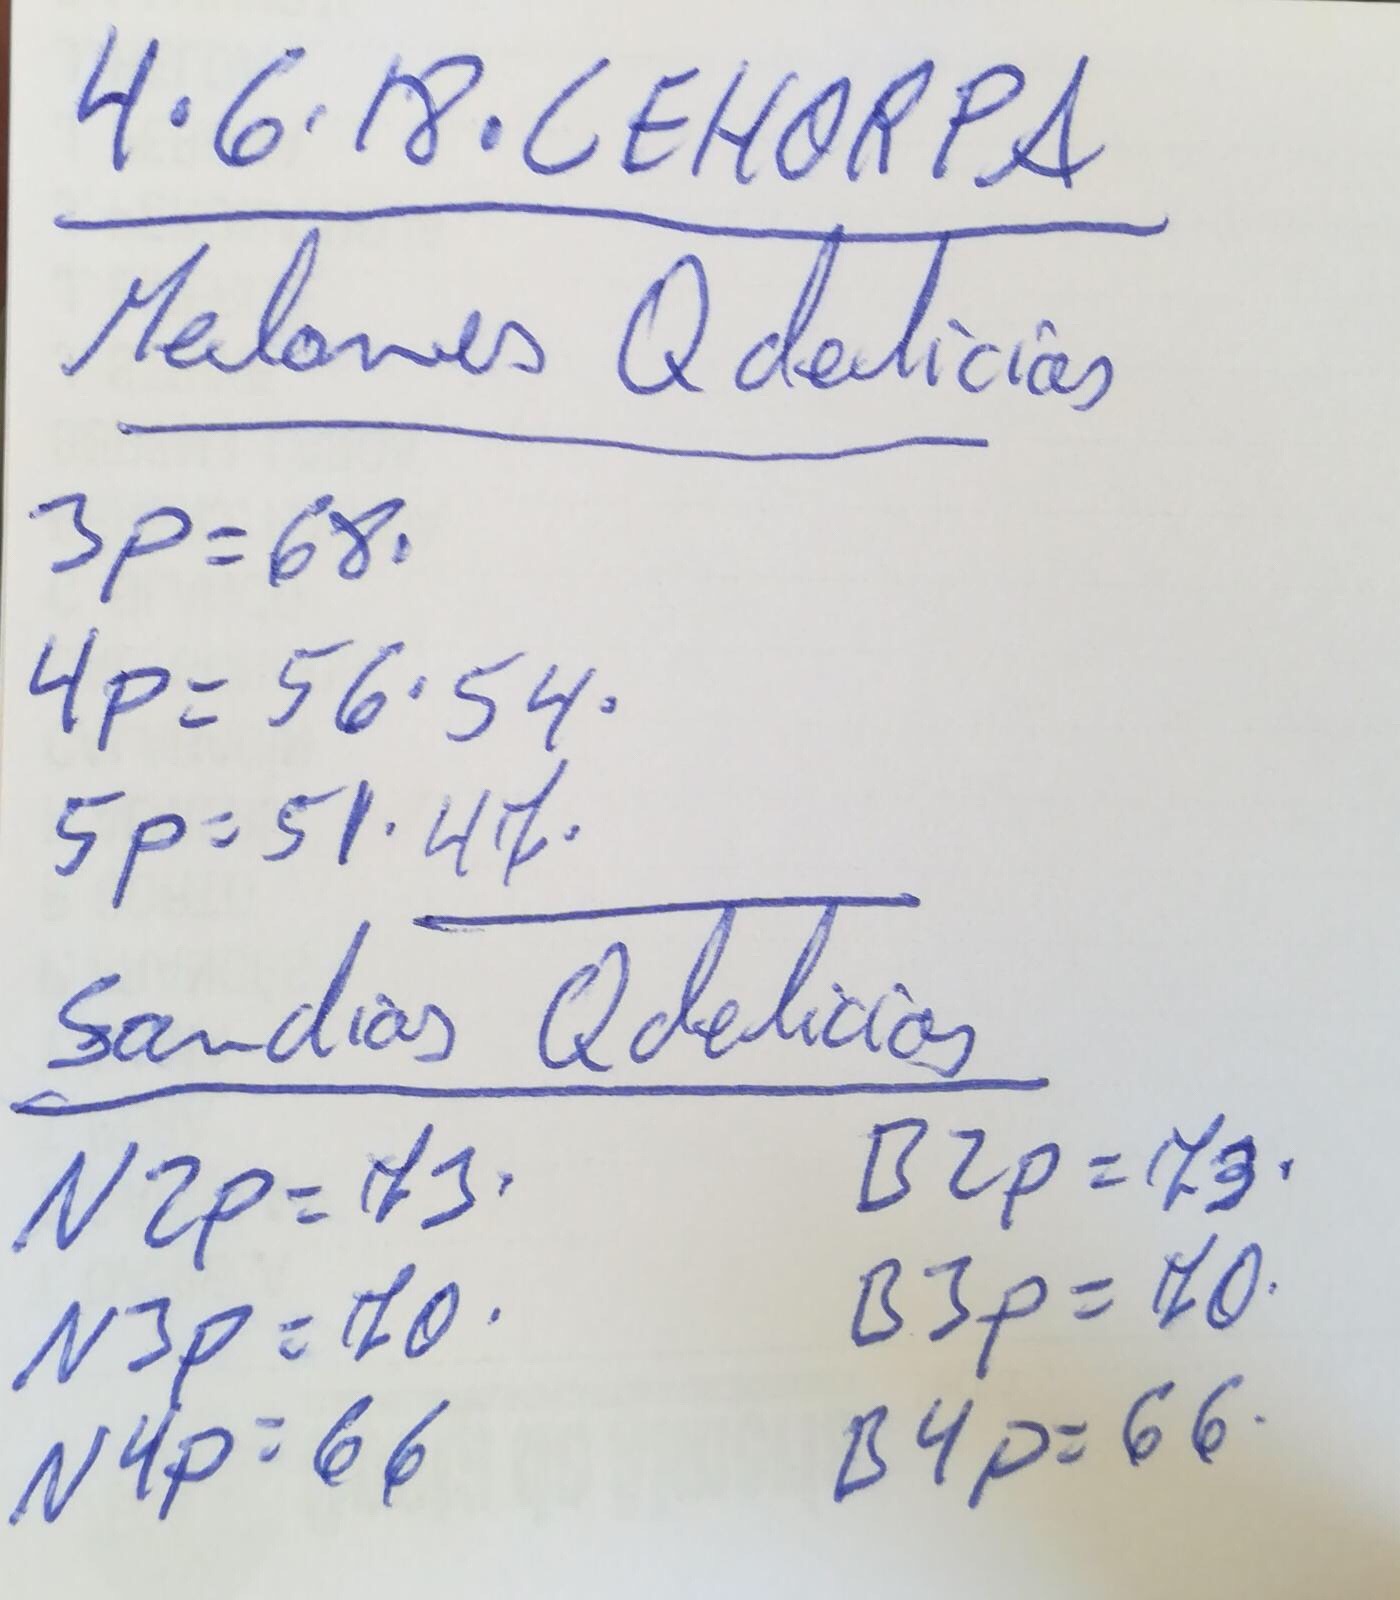 4.6.18.CEHORPA
Melones Qdelicias
3p=68.
4p=56.54.
5p=51.47.
Sandias Qdelicias
N2p=73. B2p=73.
N3p=70. B3p=70.
N4p=66 B4p=66.